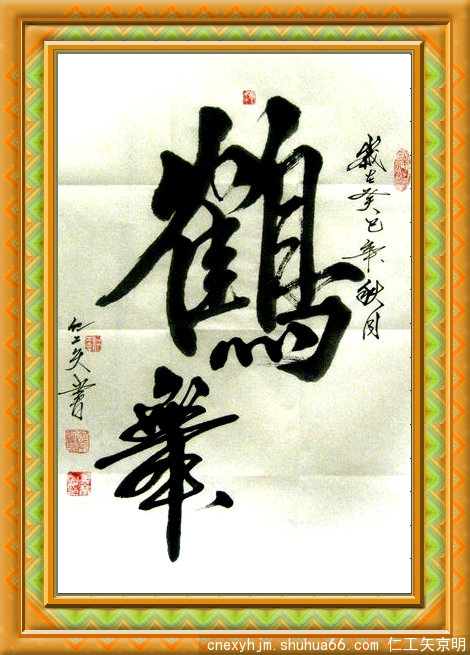 歲在癸巳年秋月
鶴舞
仁工矢書
cnexyhjm.shuhua66.com 仁工矢京明